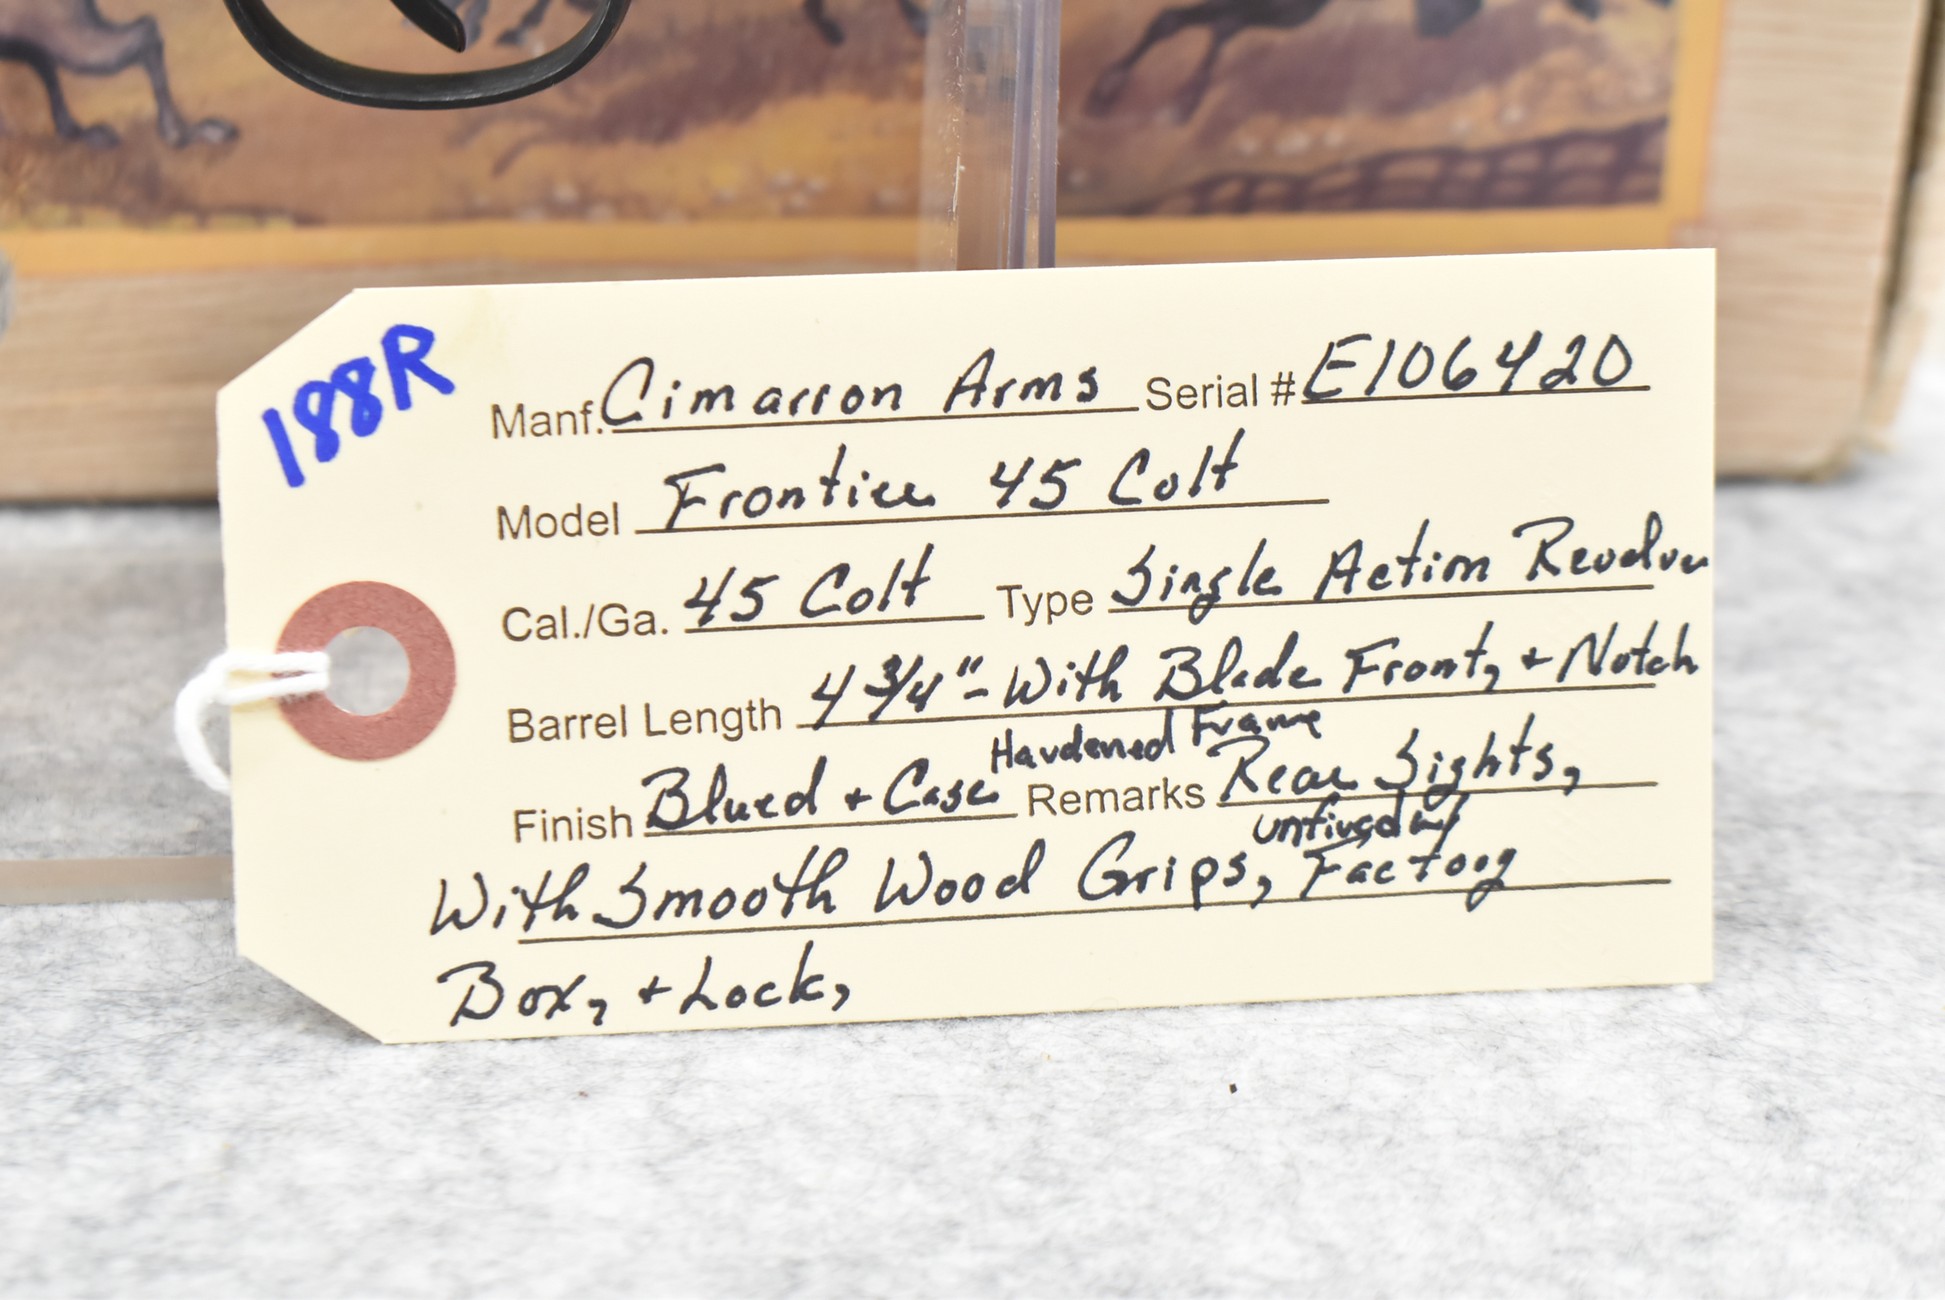 188R
Manf. Cimarron Arms Serial # E106420
Model Frontier 45 Colt
Cal./Ga. 45 Colt Type Single Action Revolver
Barrel Length 4 3/4" - With Blade Front, + Notch
Hardened Frame
Finish Blued + Case Remarks Rear Sights,
unfired w/
With Smooth Wood Grips, Factory
Box, + Lock,